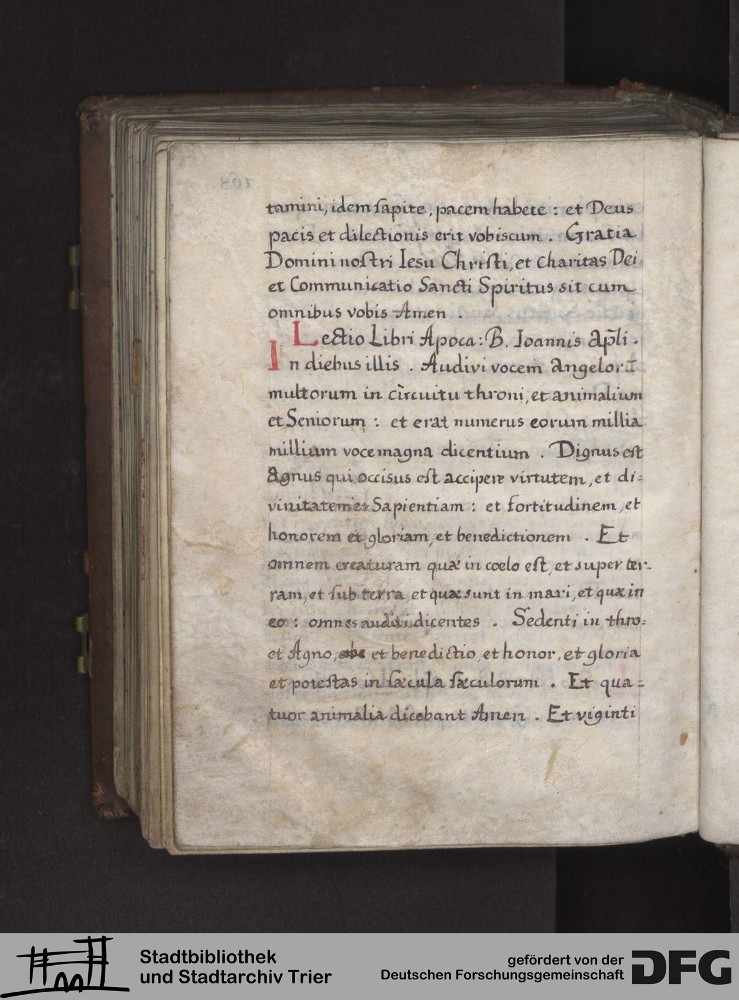 tamini, idem sapite, pacem habete : et Deus
pacis et dilectionis erit vobiscum . Gratia
Domini nostri Iesu Christi, et charitas Dei
et Communicatio Sancti Spiritus sit cum
omnibus vobis Amen .
Lectio Libri Apoca: B. Ioannis apli .
In diebus illis . Audivi vocem angelorū
multorum in circuitu throni, et animalium
et Seniorum : et erat numerus eorum millia
millium voce magna dicentium . Dignus est
agnus qui occisus est accipere virtutem, et di:
vinitatem et Sapientiam : et fortitudinem, et
honorem et gloriam, et benedictionem . Et
omnem creaturam quæ in coelo est, et super ter-
ram, et sub terra, et quæ sunt in mari, et quæ in
eo : omnes audivi dicentes . Sedenti in thro:
et Agno, et benedictio, et honor, et gloria
et potestas in sæcula sæculorum . Et qua:
tuor animalia dicebant Amen . Et viginti
Stadtbibliothek
und Stadtarchiv Trier
gefördert von der
Deutschen Forschungsgemeinschaft
DFG